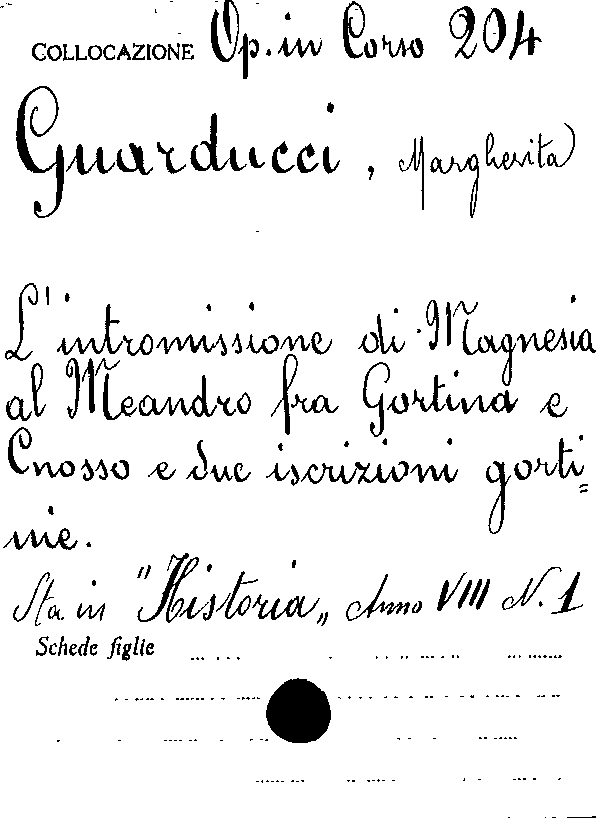 COLLOCAZIONE Op. in Corso 204
Guarducci, Margherita
L'intromissione di Magnesia
al Meandro fra Gortina e
Cnosso e due iscrizioni gorti=
nie.
Sta in "Historia„ Anno VIII N. 1
Schede figlie